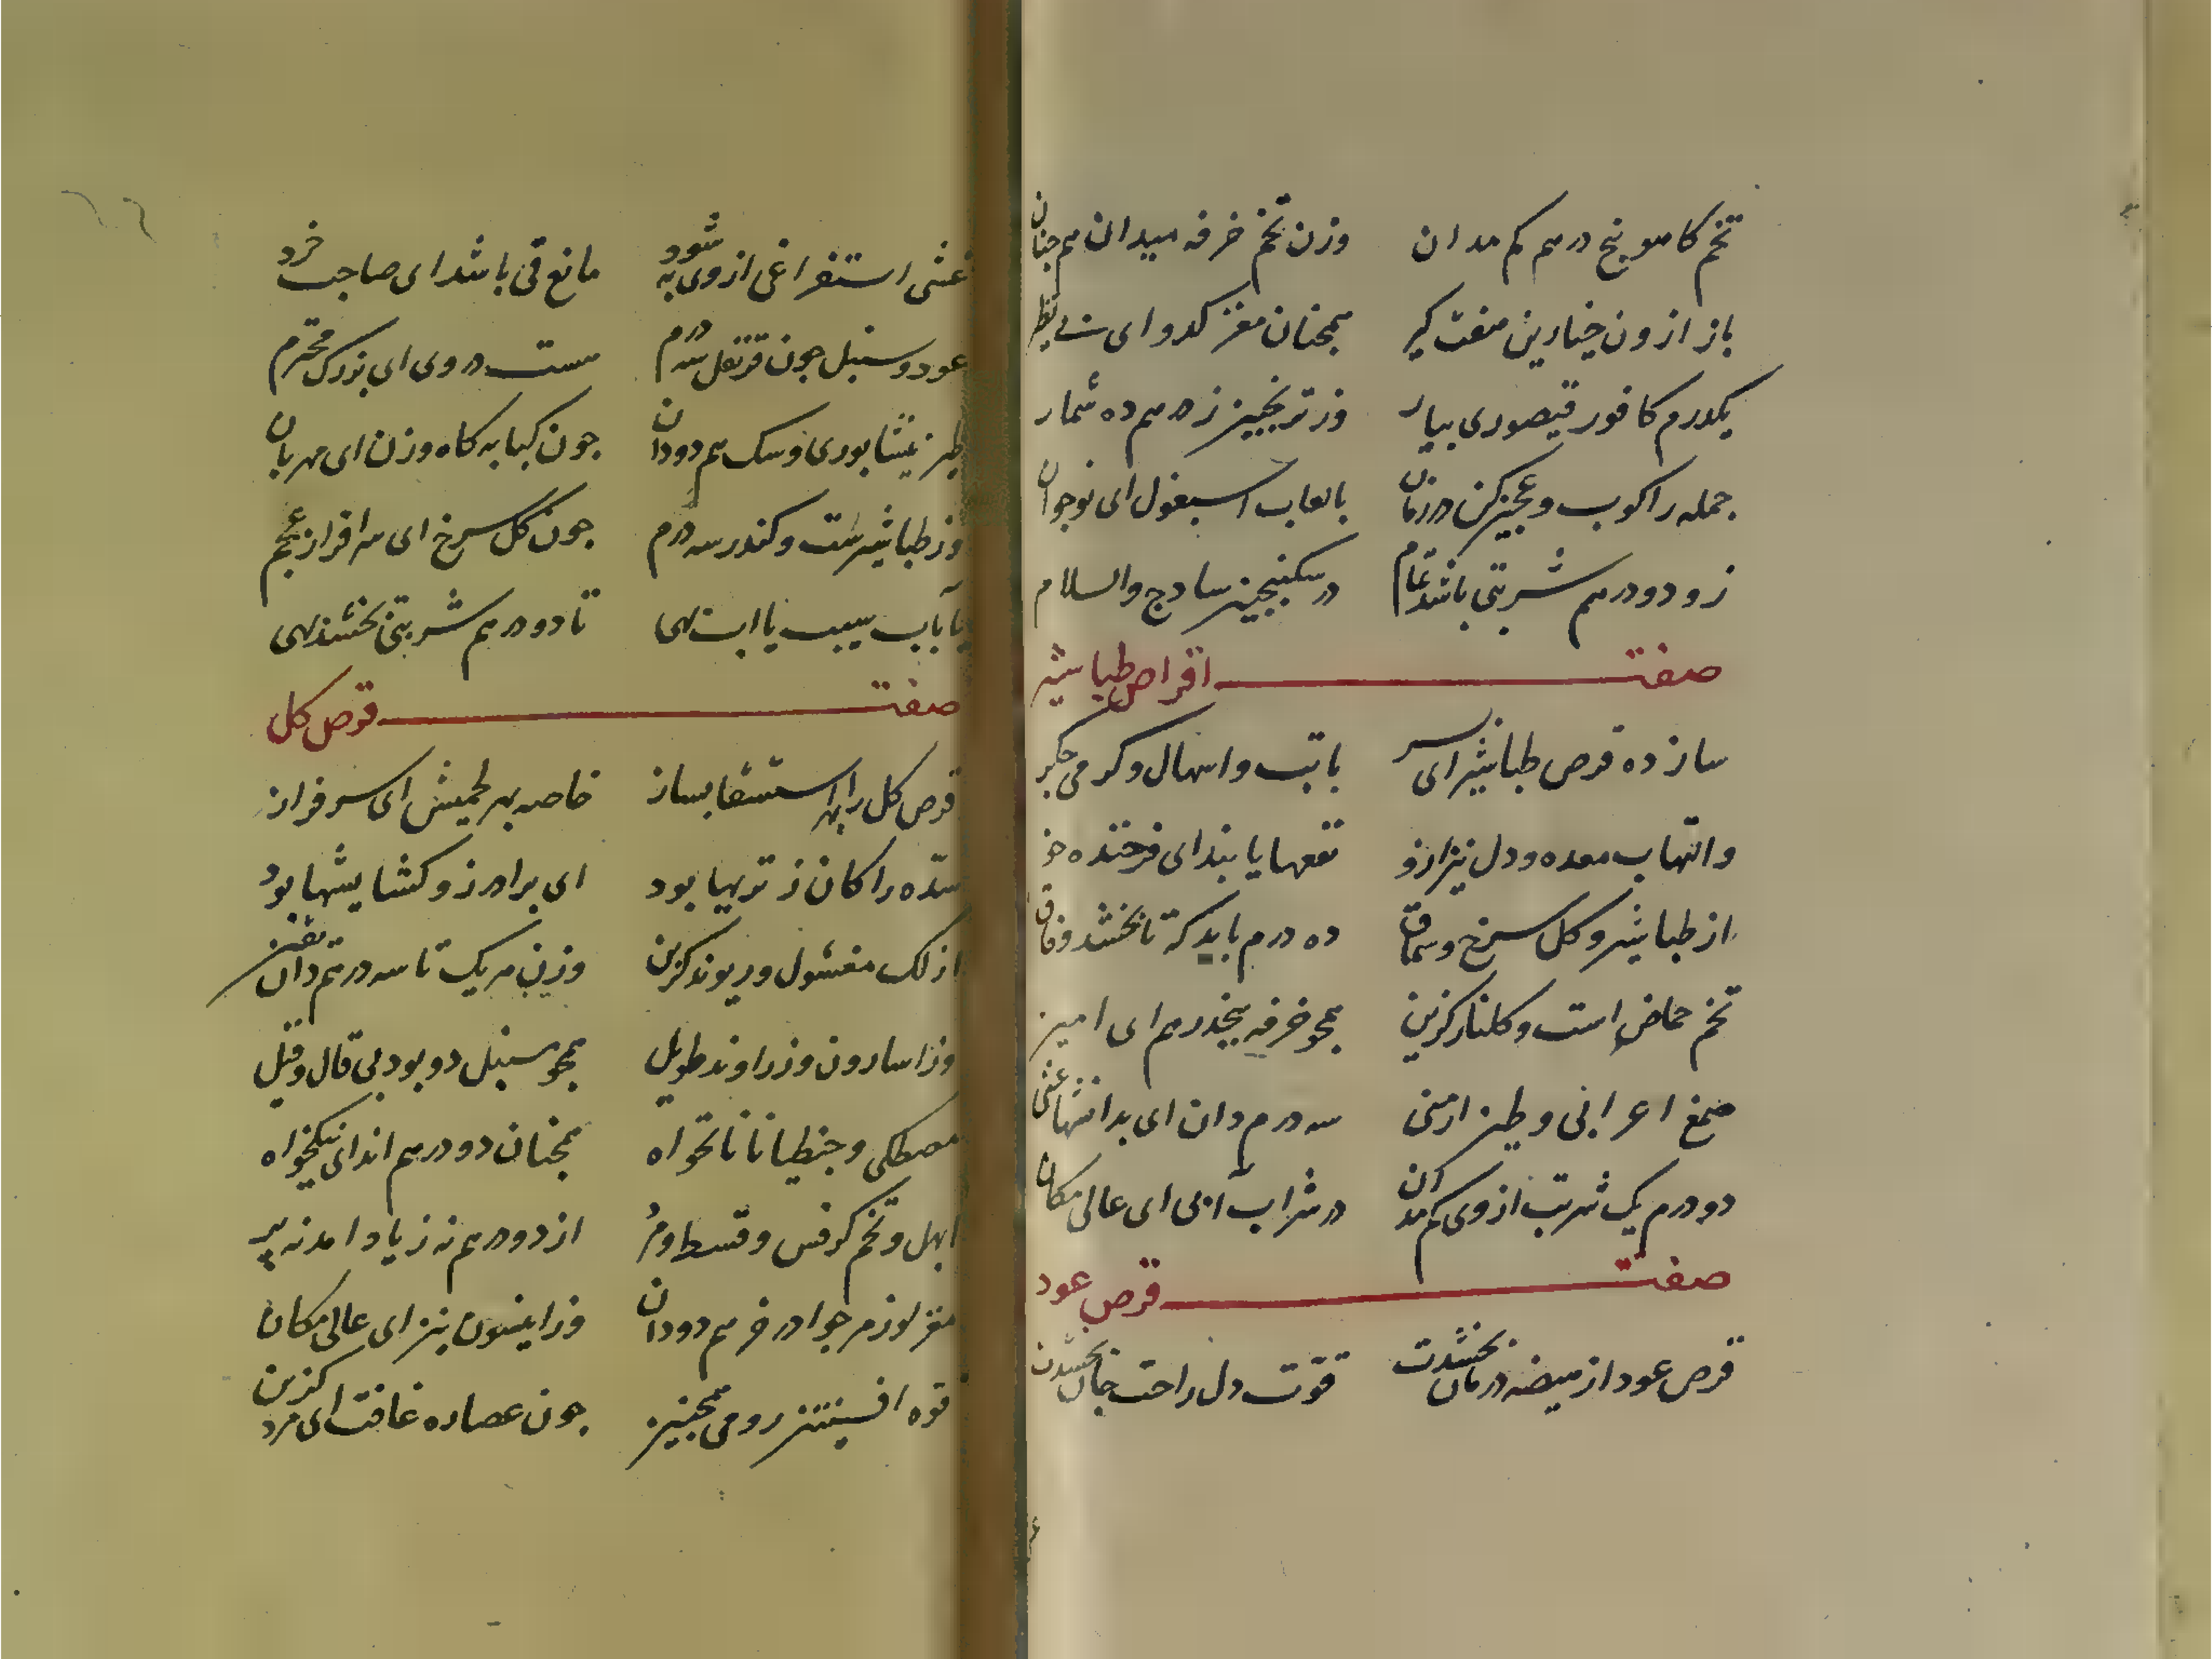 تخم کاهو پنج درهم کم مدان وزن تخم خرفه میدان هم چنان
باز ازون خیارین هفت کیر همچنان مغز کدو ای بی نظیر
یکدرم کافور قیصوری بیار وز ترنجبین ز درهم ده شمار
جمله را کوب و عجین کن در زمان با لعاب اسبغول ای نوجوان
زو دو درهم شربتی باشد تمام در سکنجبین سادج والسلام
صفت اقراص طباشیر
سازده قرص طباشیر ای سر با تب و اسهال و کرمی جکر
و التهاب معده و دل نیز ازو نفعها یابند ای فرخنده خو
از طباشیر و کل سرخ و سماق ده درم باید که تا بخشد وفاق
تخم حماض است و کلنار کزین همچو خرفه پنجدرهم ای امین
صمغ اعرابی و طین ارمنی سه درم دان ای بدانشها غنی
دو درم یک شربت از وی کم مدان در شراب آبی ای عالی مکان
صفت قرص عود
قرص عود از هیضه درمان بخشدت قوّت دل راحت جان بخشدت
غشی استفراغی از وی به شود مانع قی باشد ای صاحب خرد
عود و سنبل جون قرنفل سه درم هست در وی ای بزرک محترم
طین نیشابوری و سک هم دو دان جون کبابه کاه وزن ای مهربان
وز طباشیرست و کندر سه درم جون کل سرخ ای سرافراز عجم
با آب سیب یا اب بهی تا دو درهم شربتی بخشد بهی
صفت قرص کل
قرص کل را بهر استسقا بساز خاصه بهر لحمیش ای سرفراز
سدّه را کان ز تربیها بود ای برادر زو کشایشها بود
از لک مغسول و ریوند کزین وزن هر یک تا سه درهم دان یقین
وز اسارون و زراوند طویل همچو سنبل دو بود بی قال و قیل
مصطکی و جنطیانا نانخواه همچنان دو درهم اند ای نیکخواه
ابهل و تخم کرفس و قسط و مر از دو درهم نه زیاد امد نه پر
مغز لوز مر جو اذخر هم دو دان وز انیسون نیز ای عالی مکان
فوه افسنتین رومی همچنین جون عصاره غافت ای مرد کزین